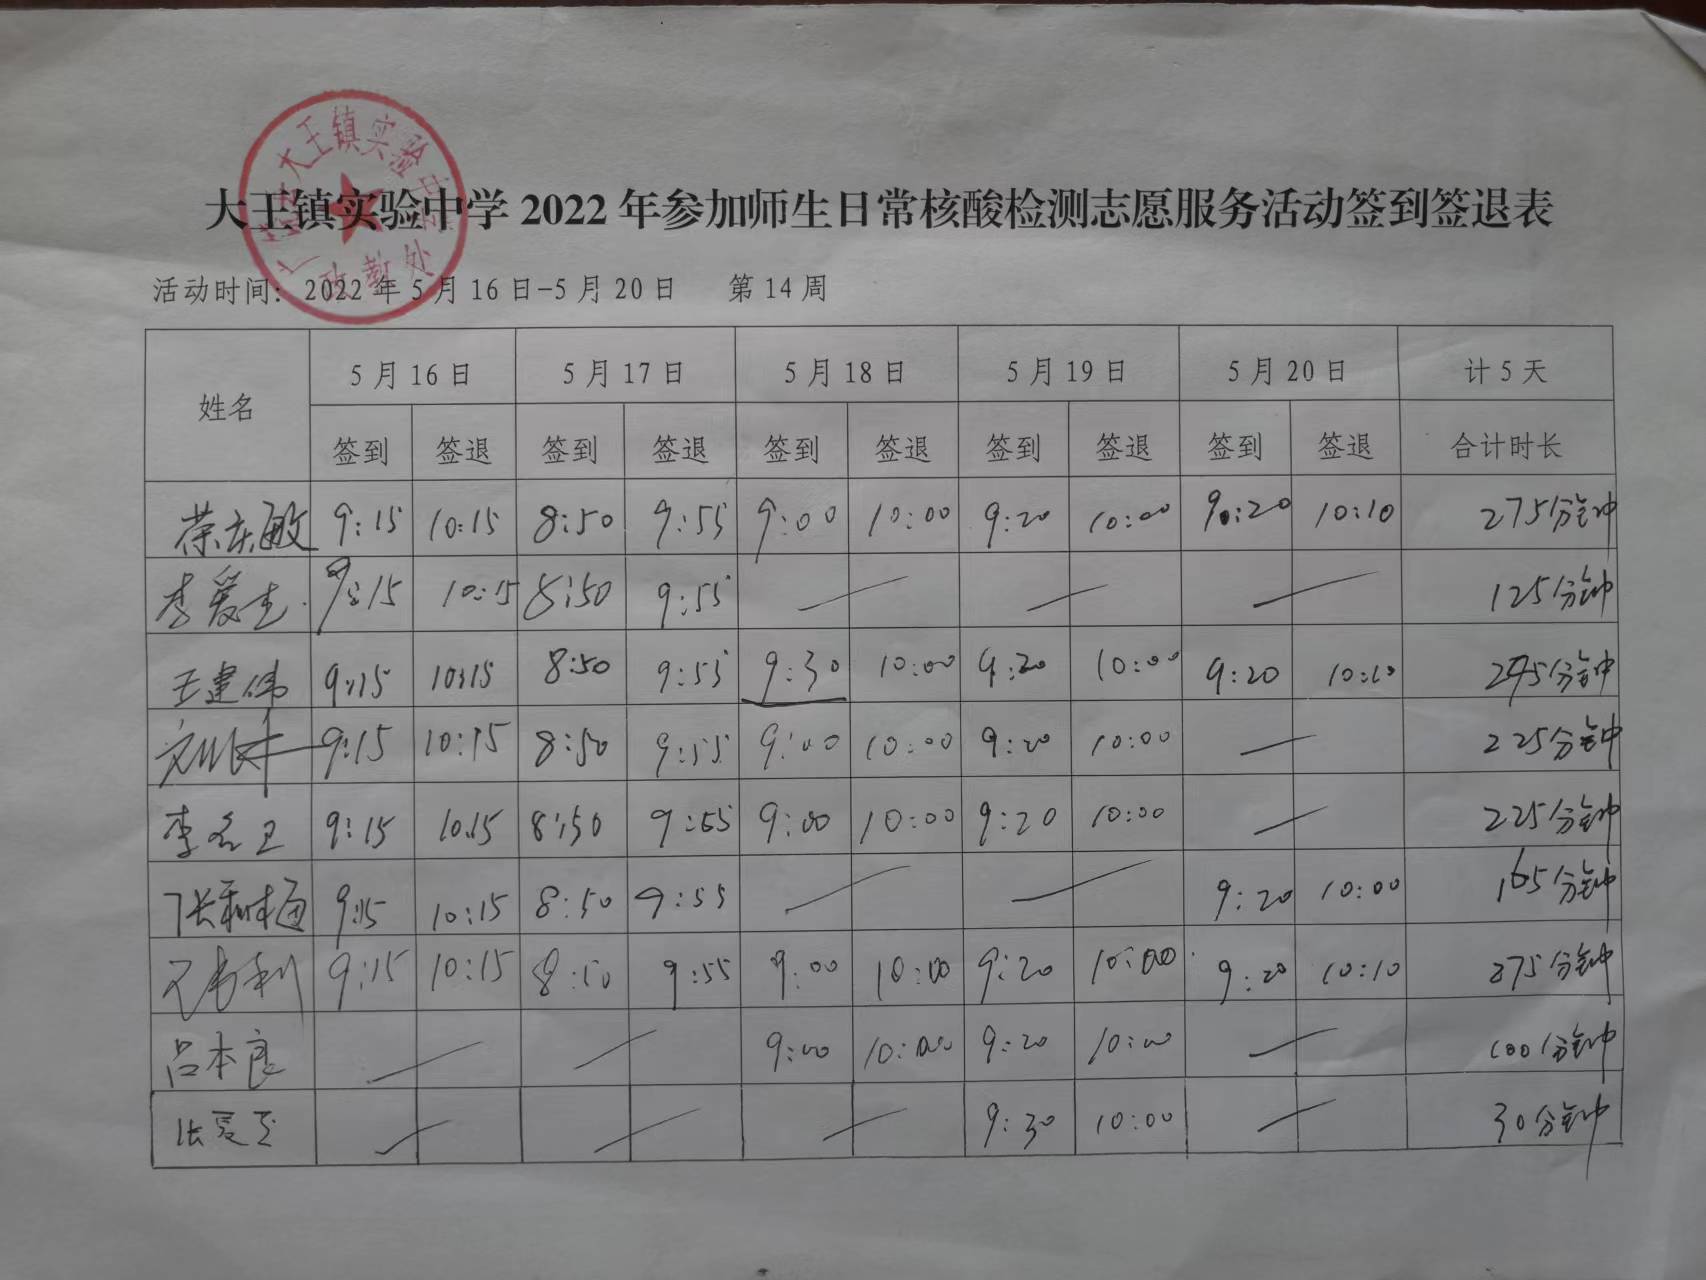 大王镇实验中学
政教处
大王镇实验中学 2022 年参加师生日常核酸检测志愿服务活动签到签退表
活动时间：2022 年 5 月 16 日-5 月 20 日 第 14 周
姓名 5 月 16 日 5 月 17 日 5 月 18 日 5 月 19 日 5 月 20 日 计 5 天
签到 签退 签到 签退 签到 签退 签到 签退 签到 签退 合计时长
9:15 10:15 8:50 9:55 9:00 10:00 9:20 10:00 9:20 10:10 275分钟
李爱生 9:15 10:15 8:50 9:55 — — — 125分钟
王建伟 9:15 10:15 8:50 9:55 9:30 10:00 9:20 10:00 9:20 10:10 245分钟
9:15 10:15 8:50 9:55 9:00 10:00 9:20 10:00 — 225分钟
9:15 10:15 8:50 9:55 9:00 10:00 9:20 10:00 — 225分钟
9:15 10:15 8:50 9:55 — — 9:20 10:00 165分钟
9:15 10:15 8:50 9:55 9:00 10:00 9:20 10:00 9:20 10:10 275分钟
吕本良 — — 9:00 10:00 9:20 10:00 — 100分钟
— — — 9:30 10:00 — 30分钟